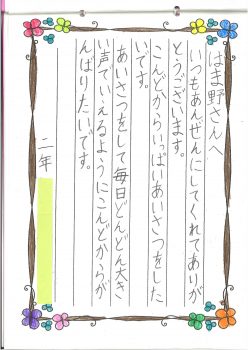 はま野さんへ
いつもあんぜんにしてくれてありが
とうございます。
こんどからいっぱいあいさつをした
いです。
あいさつをして毎日どんどん大き
い声でいえるようにこんどからが
んばりたいです。
二年